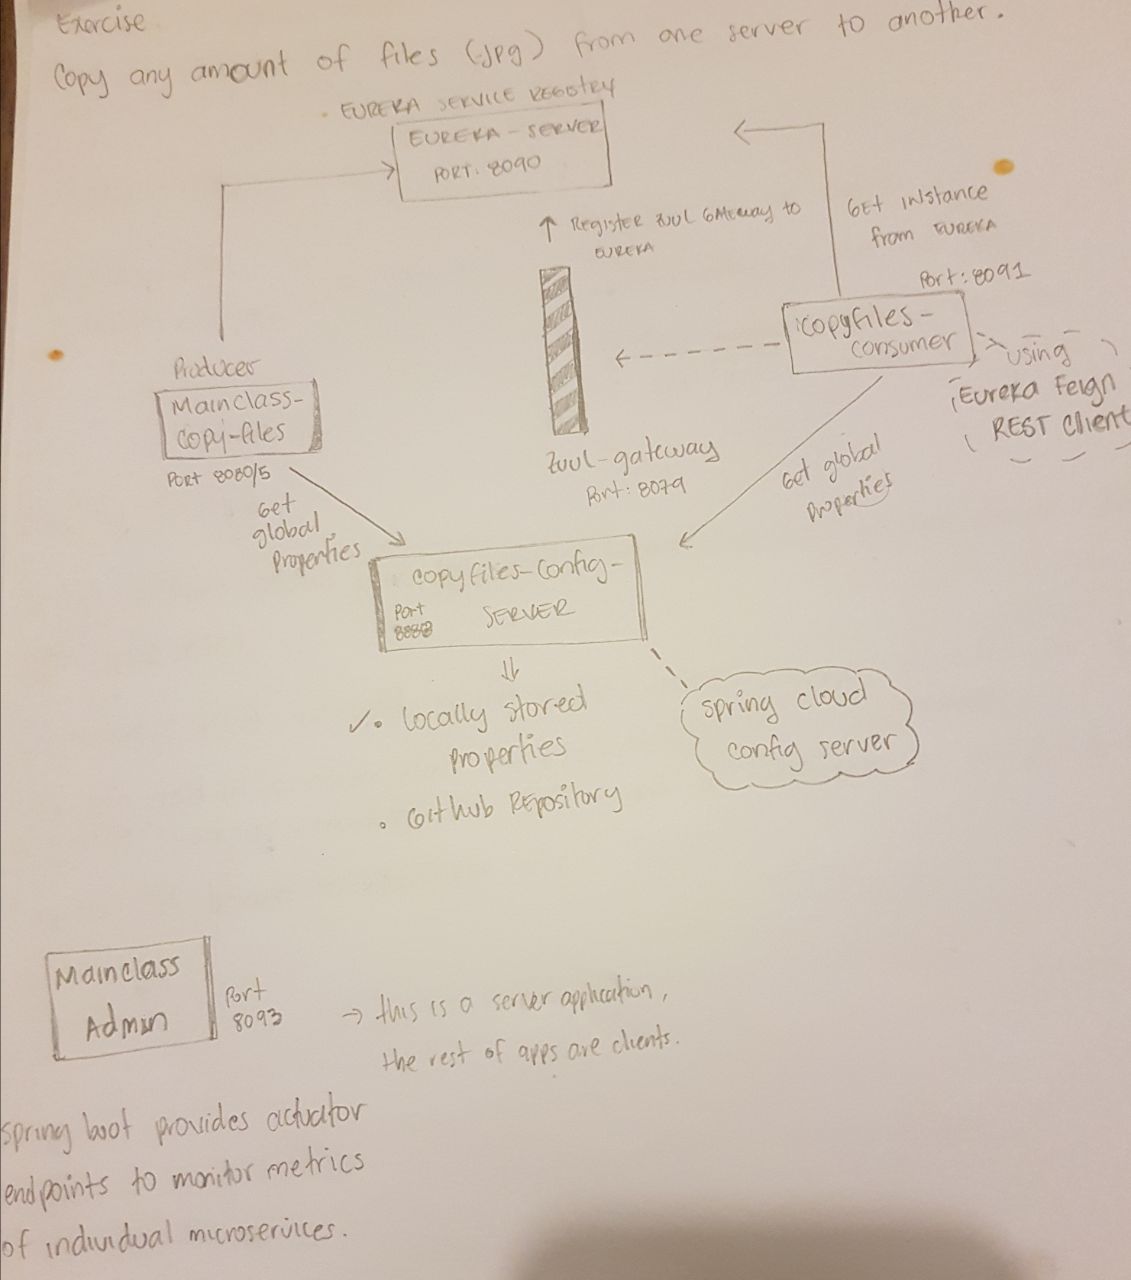 Exercise
Copy any amount of files (.jpg) from one server to another.
• EUREKA SERVICE REGISTRY
EUREKA-SERVER
PORT: 8090
Register ZUUL Gateway to
EUREKA
Get instance
from EUREKA
Port: 8091
copyfiles-
consumer
using
Eureka Feign
REST Client
Producer
Mainclass-
copy-files
Port 8080/5
Get
global
Properties
Zuul-gateway
Port: 8079
Get global
Properties
copyfiles-config-
SERVER
Port
✓• locally stored
Properties
• Github Repository
spring cloud
config server
Mainclass
Admin
Port
8093
→ this is a server application,
the rest of apps are clients.
Spring boot provides actuator
endpoints to monitor metrics
of individual microservices.